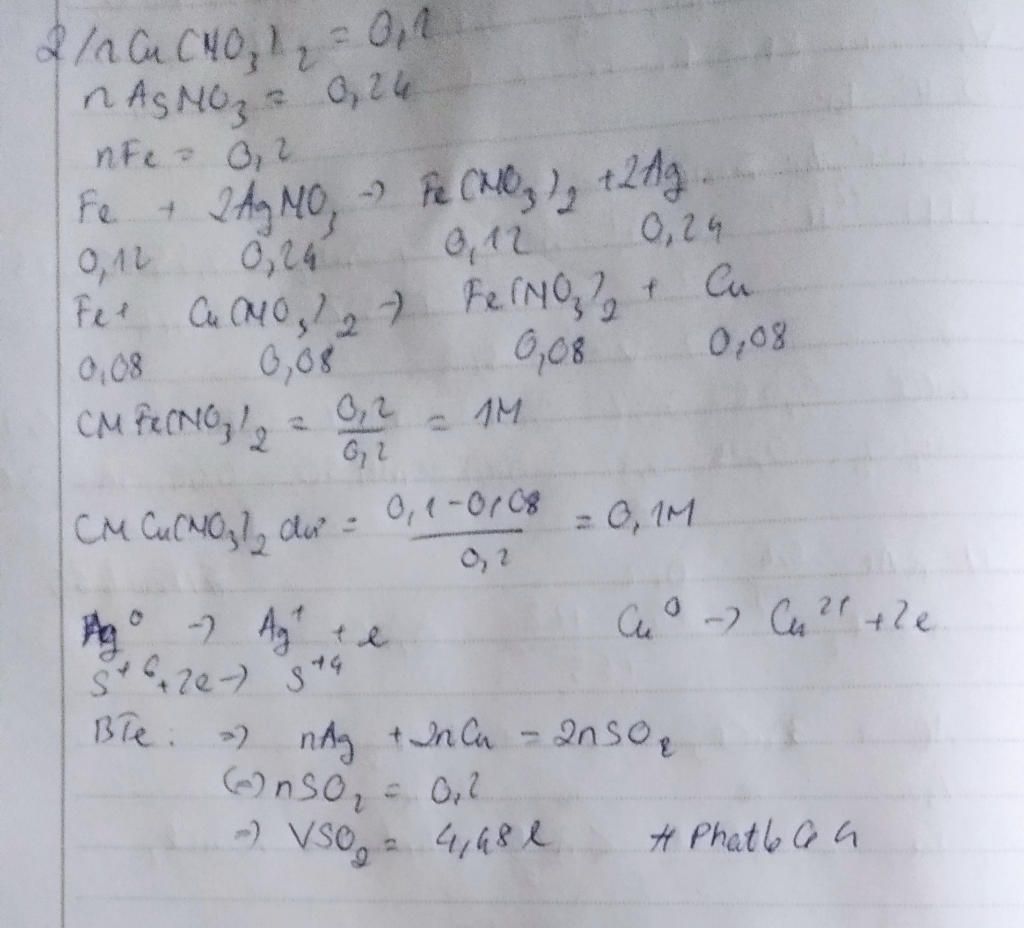 2/ nCu(NO3)2 = 0,1
nAgNO3 = 0,24
nFe = 0,2
Fe + 2AgNO3 -> Fe(NO3)2 + 2Ag
0,12 0,24 0,12 0,24
Fe + Cu(NO3)2 -> Fe(NO3)2 + Cu
0,08 0,08 0,08 0,08
CM Fe(NO3)2 = 0,2/0,2 = 1M
CM Cu(NO3)2 dư = 0,1-0,08/0,2 = 0,1M
Ag0 -> Ag+ + e Cu0 -> Cu2+ + 2e
S+6 + 2e -> S+4
BTe: => nAg + 2nCu = 2nSO2
(=) nSO2 = 0,2
=> VSO2 = 4,48 l